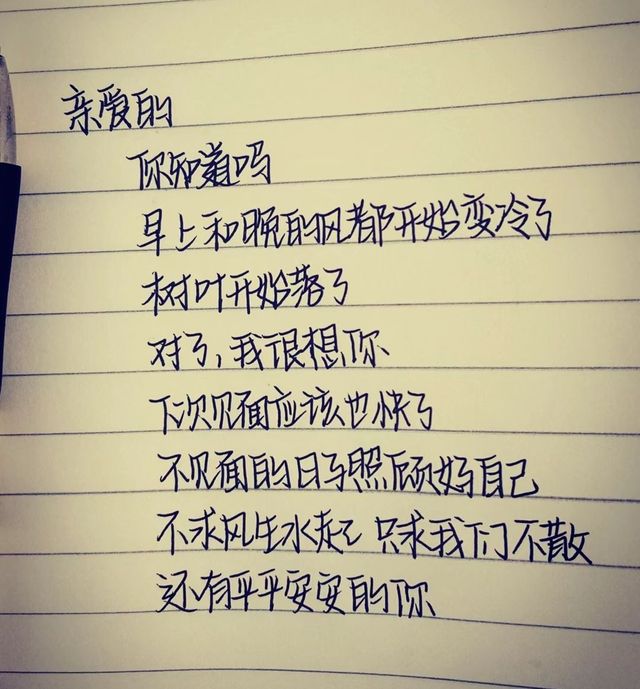 亲爱的
你知道吗
早上和晚的风都开始变冷了
树叶开始落了
对了,我很想你
下次见面应该也快了
不见面的日子照顾好自己
不求风生水起 只求我们不散
还有平平安安的你